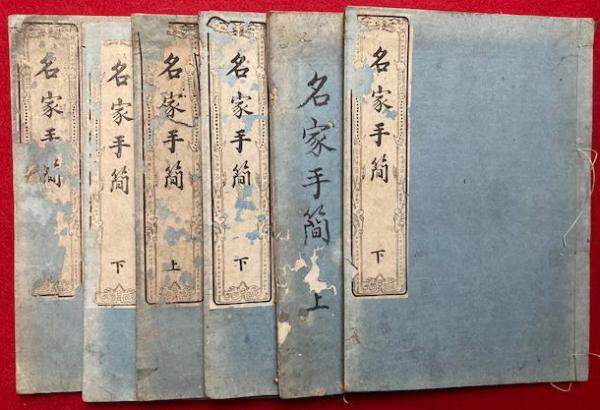 名家手簡
名家手簡
下
名家手簡
上
名家手簡
下
名家手簡
上
名家手簡
下